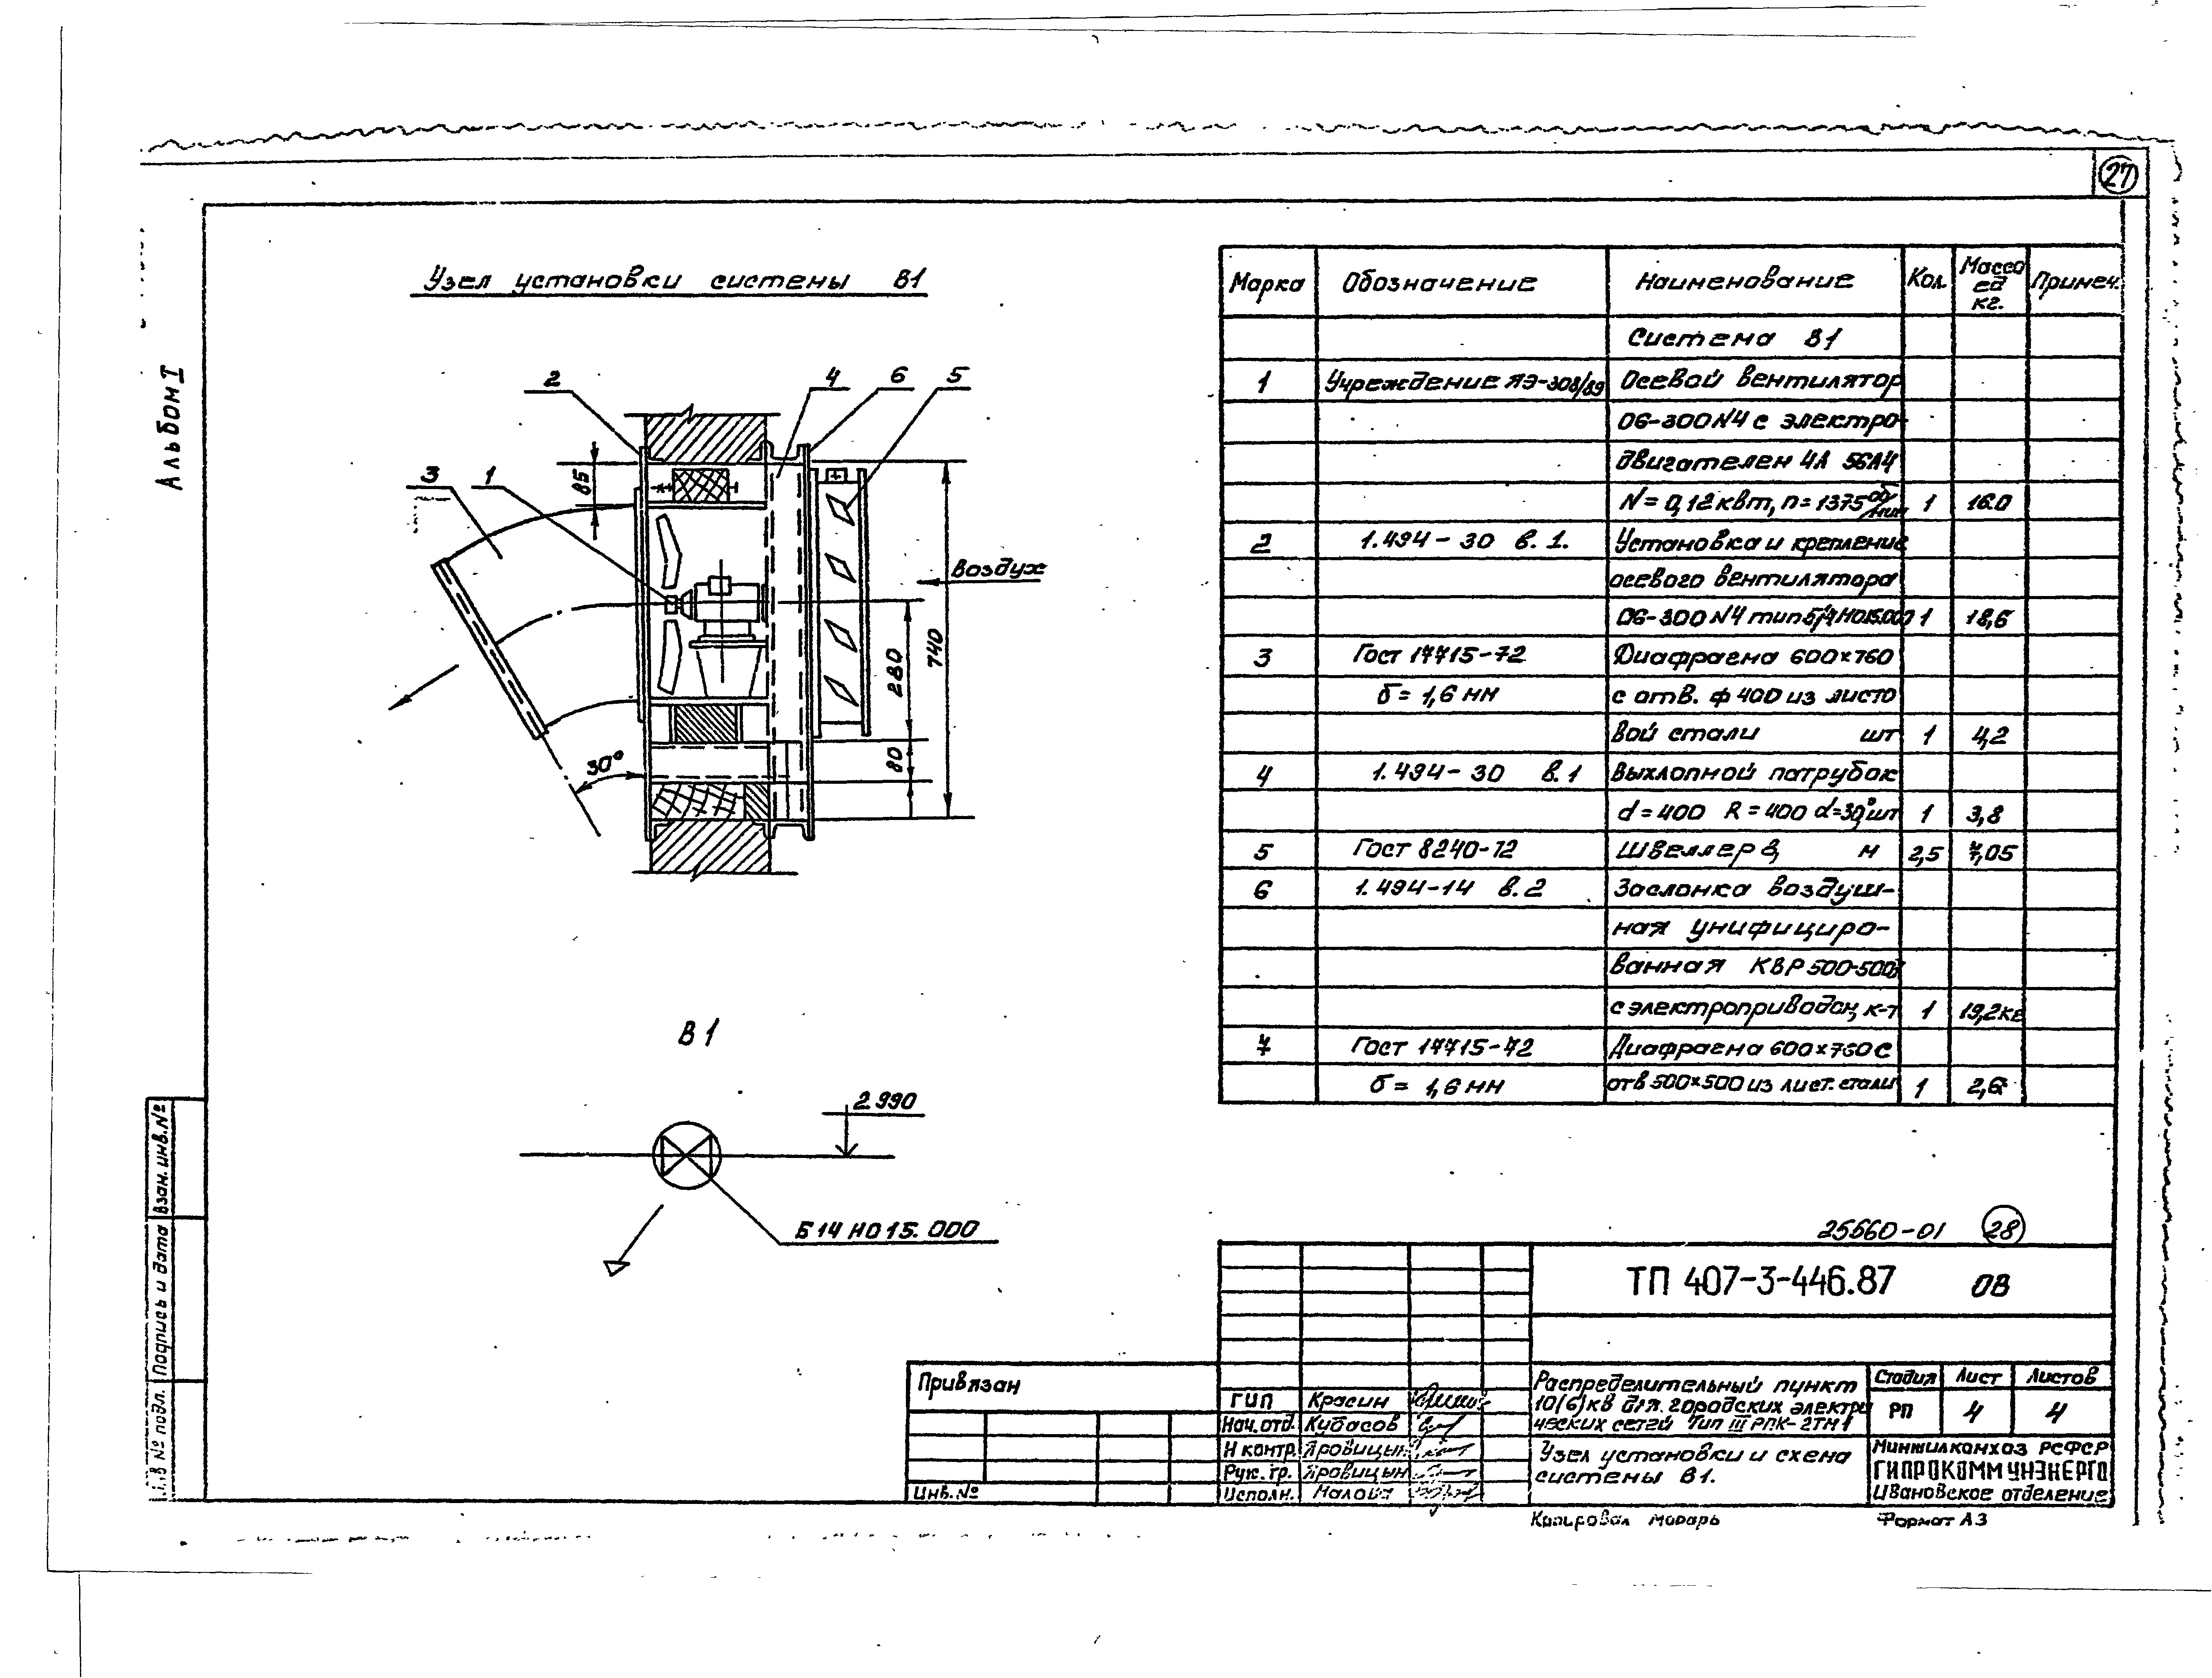 27
Альбом I
Узел установки системы В1
2
4
6
5
3
1
85
Воздух
280
740
80
30°
В1
2990
Б14 Н015.000
Марка Обозначение Наименование Кол. Масса ед кг. Примеч.
Система В1
1 Учреждение ЯЭ-308/89 Осевой вентилятор
06-300 N4 с электро-
двигателем 4А 56А4
N = 0,12 квт, n = 1375 об/мин 1 16.0
2 1.494-30 в. 1. Установка и крепление
осевого вентилятора
06-300 N4 тип Б14 Н015.000 1 18,6
3 Гост 17715-72 Диафрагма 600×760
б = 1,6 мм с отв. ф 400 из листо
вой стали шт 1 4,2
4 1.494-30 в.1 Выхлопной патрубок
d = 400 R = 400 α=30°, шт 1 3,8
5 Гост 8240-72 Швеллер 8, м 2,5 7,05
6 1.494-14 в.2 Заслонка воздуш-
ная унифициро-
ванная КВР 500-500
с электроприводом, к-т 1 19,2кг
7 Гост 17715-72 Диафрагма 600×760 с
б = 1,6 мм отв 500×500 из лист. стали 1 2,6
25660-01 28
ТП 407-3-446.87 ОВ
Привязан
Инв. №
ГИП Красин
Нач. отд. Кубасов
Н контр. Яровицын
Рук. гр. Яровицын
Исполн. Малова
Распределительный пункт
10(6)кв для городских электри
ческих сетей Тип III РПК-2ТМ1
Узел установки и схема
системы В1.
Стадия Лист Листов
РП 4 4
Минжилкомхоз РСФСР
ГИПРОКОММУНЭНЕРГО
Ивановское отделение
Копировал Формат А3
Взам. инв. №
Подпись и дата
Инв № подл.